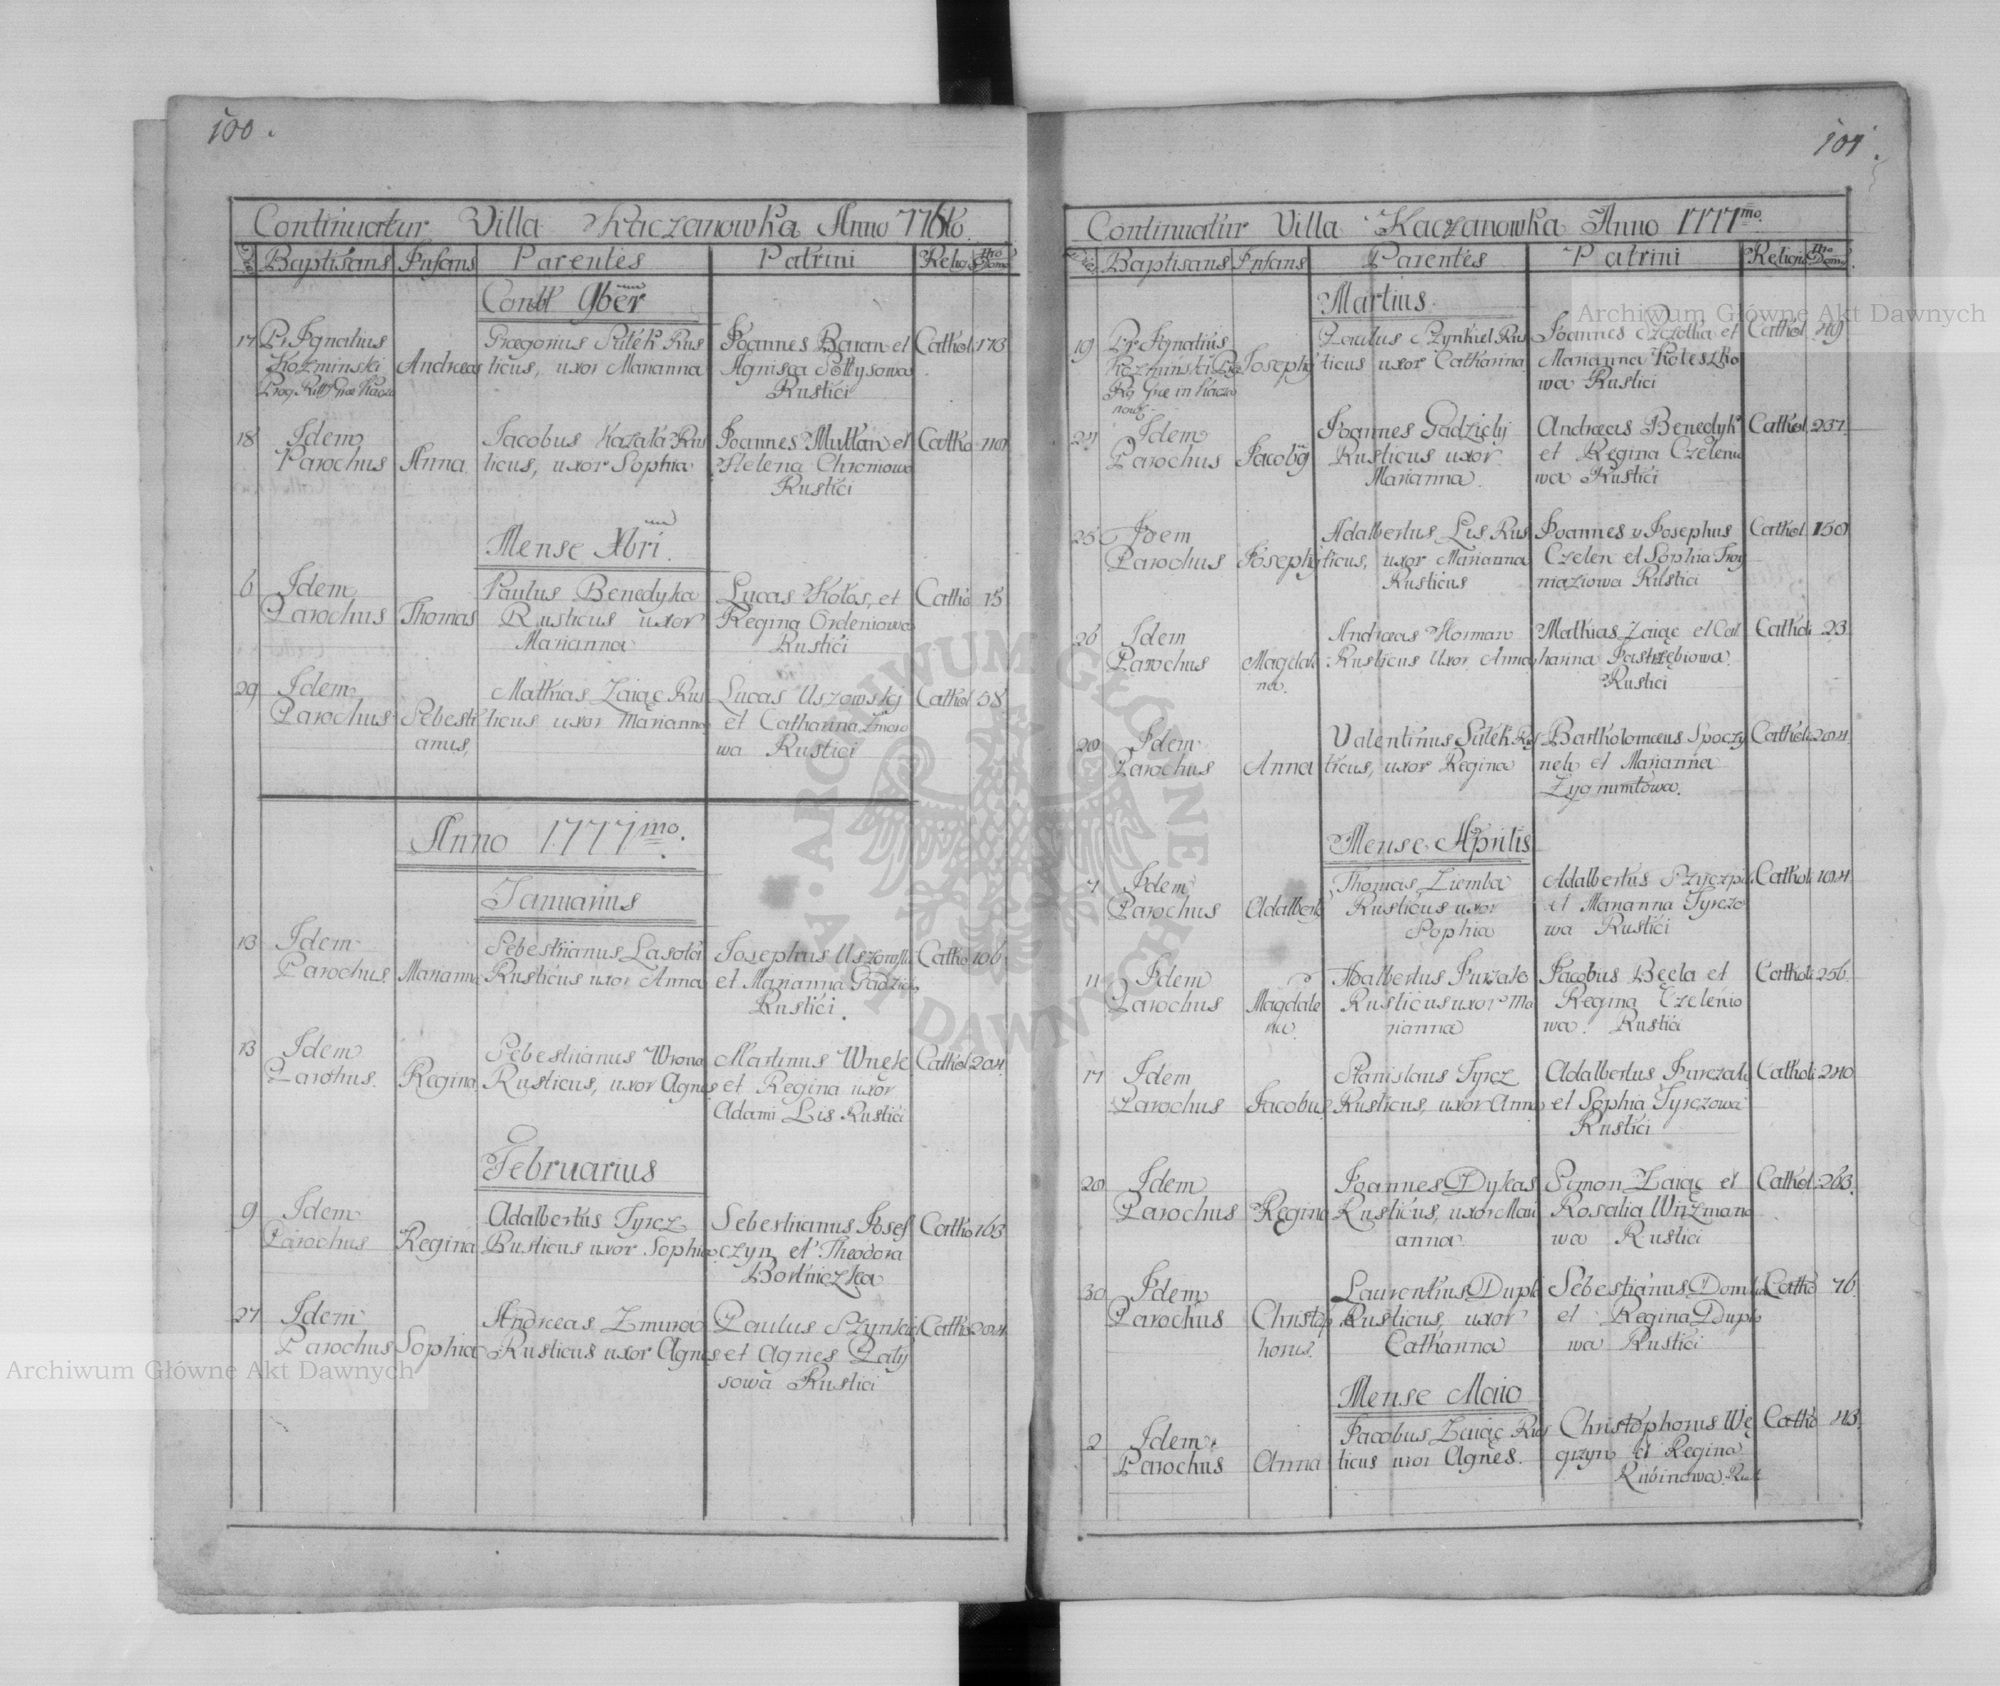 100.
Continuatur Villa Kaczanowka Anno 1776to.
Dies Baptisans Infans Parentes Patrini Relig. Nro Domo
Cont 9ber
17 Pr Ignatius Kozminski Andreas
Gregorius Sulek Rus
ticus, uxor Marianna
Joannes Baran et
Agnisca Soltysowa
Rustici
Cathol 173
18 Idem
Parochus Anna
Jacobus Kazala Rus
ticus, uxor Sophia
Joannes Multan et
Helena Chromowa
Rustici
Catho
Mense Xbri
6 Idem
Parochus Thomas
Paulus Benedyka
Rusticus uxor
Marianna
Lucas Kołos, et
Regina Ordeniowa
Rustici
Catho 15
29 Idem
Parochus Sebesti
anus,
Mathias Zaiąc Rus
ticus uxor Marianna
Lucas Uszowskÿ
et Catharina Zmoro
wa Rustici
Cathol 58
Anno 1777mo.
Januarius
13 Idem
Parochus. Marianna
Sebestianus Lasota
Rusticus uxor Anna
Josephus Uszowski
et Marianna Gadzich
Rustici.
Catho 106
13 Idem
Parochus. Regina
Sebestianus Wrona
Rusticus, uxor Agnes
Martinus Wnęk
et Regina uxor
Adami Lis Rustici
Cathol 204.
Februarius
9 Idem
Parochus Regina
Adalbertus Tyrcz
Rusticus uxor Sophia
Sebestianus Josef
czyn et Theodora
Bortniczka
Catho 163
27 Idem
Parochus Sophia
Andreas Zmura
Rusticus uxor Agnes
Paulus Szynkiel
et Agnes Paty
sowa Rustici
Catho 204
101.
Continuatur Villa Kaczanowka Anno 1777mo.
Dies Baptisans Infans Parentes Patrini Religio Nro Domo
Martius.
19 Pr Ignatius
Kozminski Joseph9
Paulus Szynkiel Rus
ticus uxor Catharina
Joannes Szczotka et
Marianna Koleszko
wa Rustici
Cathol. 49
Idem
Parochus Jacob9
Joannes Gadzicky
Rusticus uxor
Marianna.
Andreas Benedyk
et Regina Czelenio
wa Rustici
Cathol. 237.
25 Idem
Parochus Joseph9
Adalbertus Lis Rus
ticus, uxor Marianna
Rusticus
Joannes v Josephus
Czelen et Sophia
niaziowa Rustici
Cathol 150
26 Idem
Parochus Magdale
na.
Andreas Horman
Rusticus Uxor Anna
Mathias Zaiąc et Cat
harina Jastrzębiowa.
Rustici
Cathol 23.
Idem
Parochus Anna
Valentinus Sulek Rus
ticus, uxor Regina
Bartholomaeus Spoczy
nek et Marianna
Zygmuntowa.
Cathol 204.
Mense Aprilis
7 Idem
Parochus Adalbert9
Thomas Ziemba
Rusticus uxor
Sophia
Adalbertus
et Marianna Tyrczo
wa Rustici
Cathol 104.
11 Idem
Parochus Magdale
na.
Adalbertus Jurzak
Rusticus uxor Ma
rianna
Jacobus Becla et
Regina Czelenio
wa. Rustici
Cathol 256.
17 Idem
Parochus Jacobus
Stanislaus Tyrcz
Rusticus, uxor Anna
Adalbertus Jurczak
et Sophia Tyrczowa
Rustici
Cathol 240
20 Idem
Parochus Regina
Joannes Dykas
Rusticus, uxor Mari
anna.
Simon Zaiąc et
Rosalia Wirzmano
wa Rustici
Cathol 263.
30 Idem
Parochus Christop
horus.
Laurentius Dupla
Rusticus, uxor
Catharina
Sebestianus
et Regina Duplo
wa Rustici
Catho 76.
Mense Maio
2 Idem
Parochus Anna
Jacobus Zaiąc Rus
ticus uxor Agnes.
Christophorus Wę
grzyn et Regina
Rubinowa Rust
Catho
Archiwum Główne Akt Dawnych
Archiwum Główne Akt Dawnych
ARCHIWUM GŁÓWNE AKT DAWNYCH